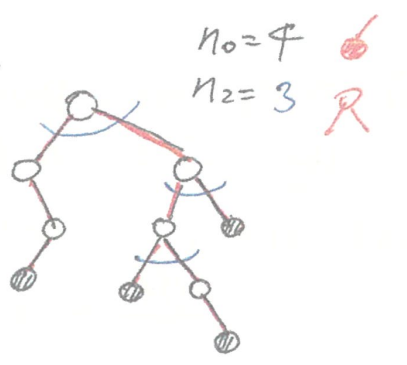 n₀=4
n₂=3